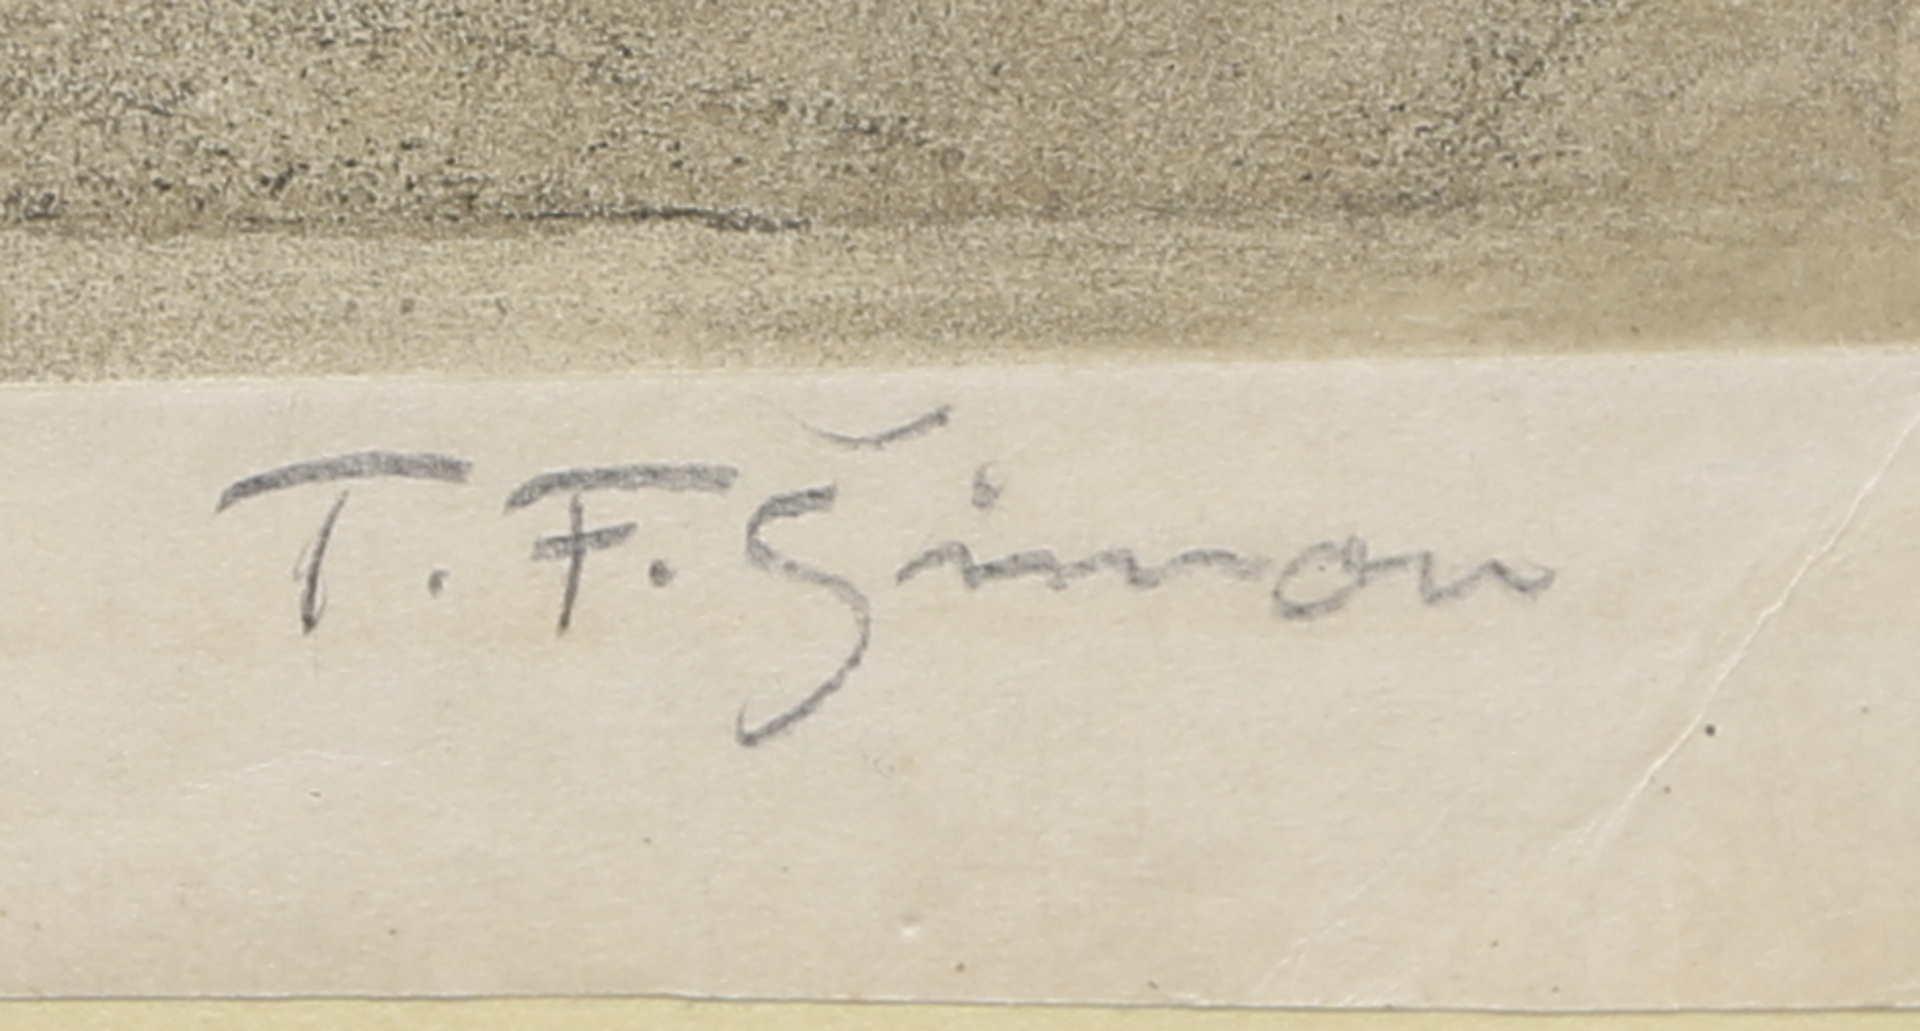 T. F. Šimon